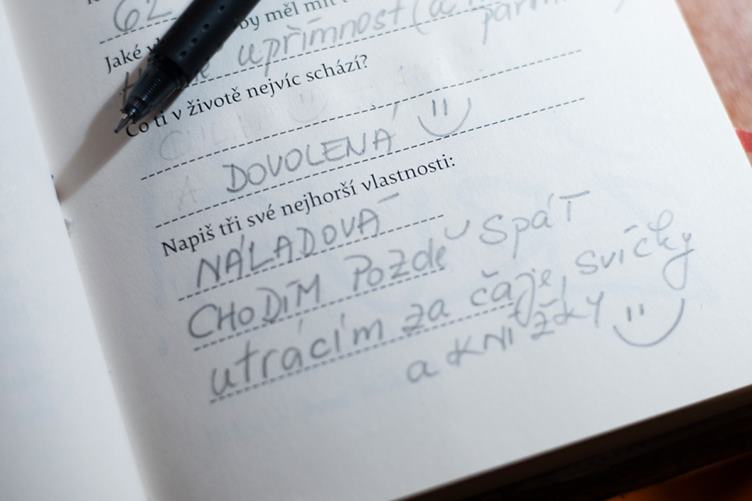 62 by měl mít
Jaké
upřímnost (a
Co ti v životě nejvíc schází?
A DOVOLENÁ
Napiš tři své nejhorší vlastnosti:
NÁLADOVÁ
CHODÍM POZDĚ SPÁT
utrácím za čaje, svíčky
a knížky